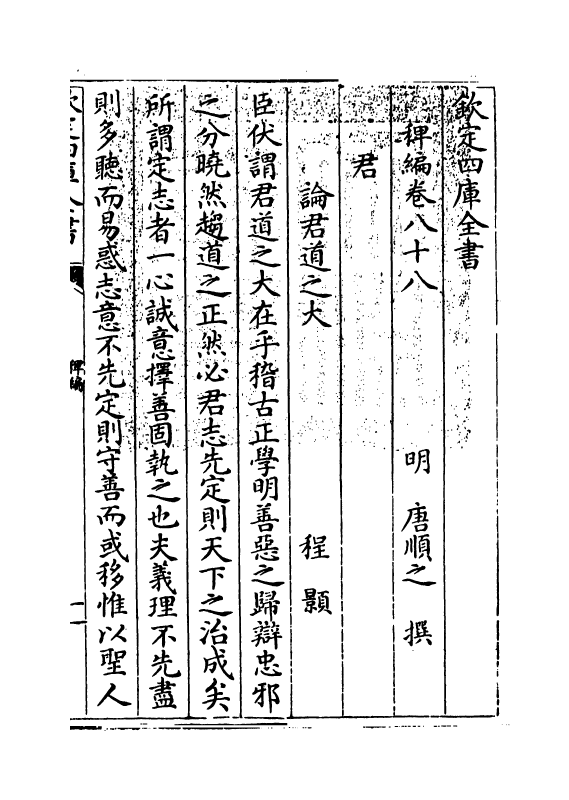 欽定四庫全書
稗編卷八十八　明　唐順之　撰
君
論君道之大　程顥
臣伏謂君道之大在乎稽古正學明善惡之歸辯忠邪
之分曉然趨道之正然必君志先定則天下之治成矣
所謂定志者一心誠意擇善固執之也夫義理不先盡
則多聽而易惑志意不先定則守善而或移惟以聖人
欽定四庫全書
稗編
一